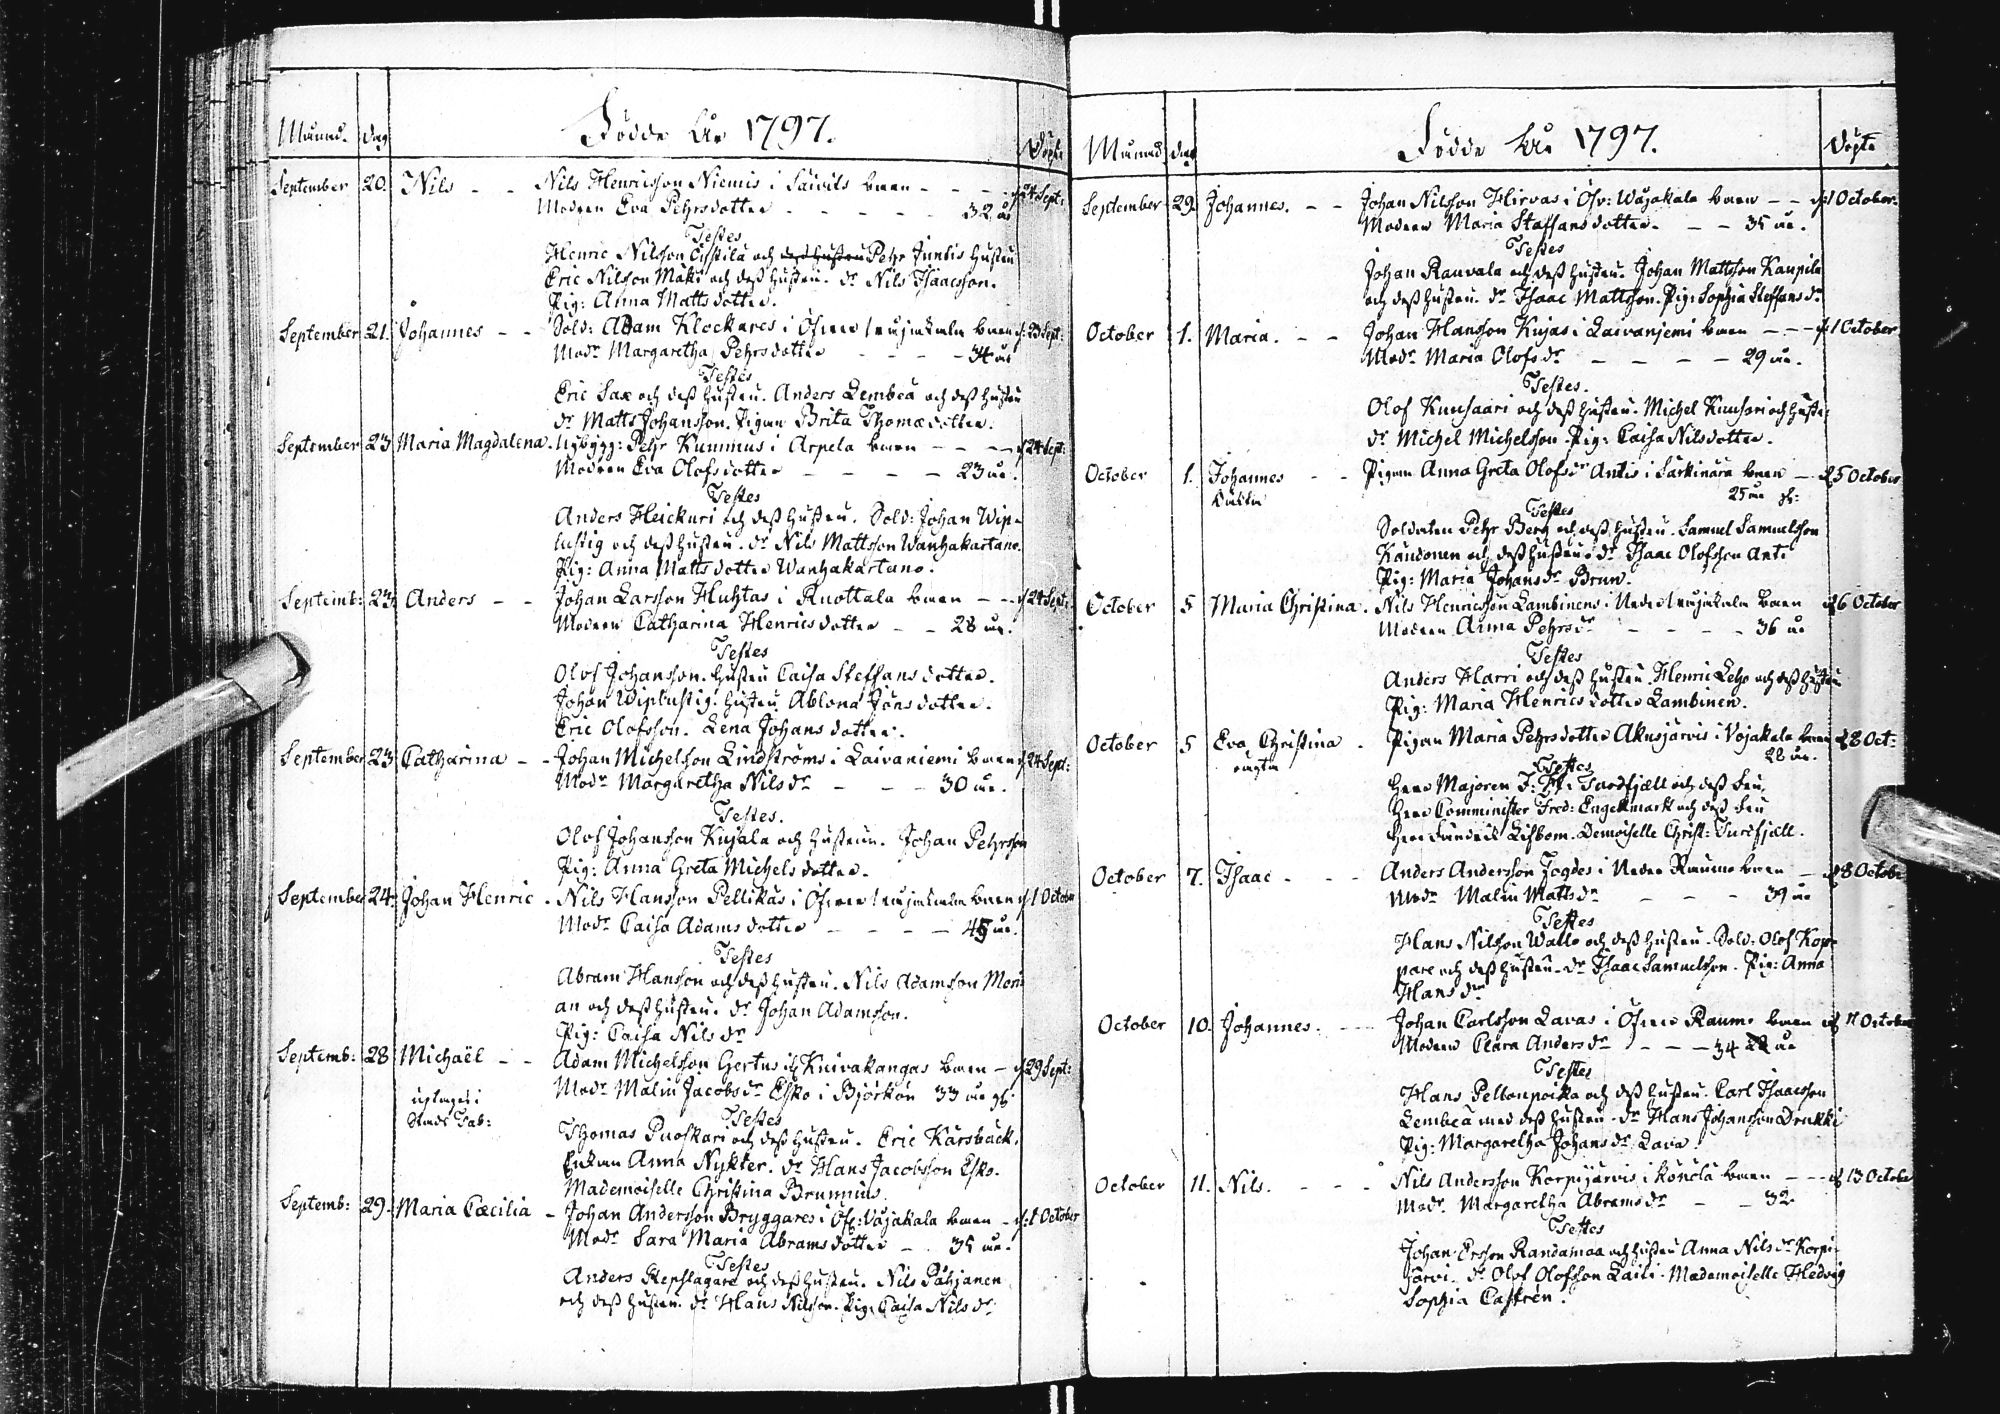 Månad. Dag Födde År 1797. Döpte
September 20. Nils - - Nils Henricsson Niemis i barn - - - d. 24 Sept:
Modren Eva Pehrsdotter - - - - - 32 år
Testes
Henric Nilsson och dess hustru Pehr Juntis hustru
Eric Nilsson Mäki och dess hustru. dr Nils Isaacsson.
Pig: Anna Mattsdotter.
September 21. Johannes - - Sold: Adam Klockares i Öfver barn d. Sept:
Modr Margaretha Pehrsdotter - - - - 34 år
Testes
Eric Sax och dess hustru. Anders Lembeå och dess hustru
dr Matts Johansson. Pigan Brita Thomædotter.
September 23 Maria Magdalena. Nybygg: Pehr Kunnus i Arpela barn - - - d 24 Sept:
Modren Eva Olofsdotter - - - - - 23 år.
Testes
Anders Heickuri och dess hustru. Sold: Johan Wip-
lustig och dess hustru. dr Nils Mattsson Wanhakartano.
Pig: Anna Mattsdotter Wanhakartano.
Septemb: 23. Anders - - Johan Larsson Huhtas i Ruottala barn - - d 24 Sept:
Modren Catharina Henricsdotter - - 28 år.
Testes
Olof Johansson. hustru Caisa Steffansdotter.
Johan Wiplustig. hustru Ablona Jönsdotter.
Eric Olofsson. Lena Johansdotter.
September 23 Catharina - - Johan Michelsson Lindströms i Laivaniemi barn d 24 Sept:
Modr Margaretha Nilsdr - - - 30 år.
Testes.
Olof Johansson Kujala och hustrun. Johan Pehrsson
Pig: Anna Greta Michelsdotter.
September 24. Johan Henric - Nils Hansson Pellikas i Öfver barn d 1 October
Modr Caisa Adamsdotter - - - - 45 år.
Testes
Abram Hansson och dess hustru. Nils Adamsson Mori-
an och dess hustru. dr Johan Adamsson.
Pig: Caisa Nilsdr
Septemb: 28 Michaël - - Adam Michelsson Gertus i Knivakangas barn - d 29 Sept:
Modr Malin Jacobsdr Esko i Björkön 33 år
uptages i
Stads Tab:
Testes
Thomas Puoskari och dess hustru. Eric Kärsbäck.
Enkan Anna Nykter. dr Hans Jacobsson Esko.
Mademoiselle Christina Brunnius.
Septemb: 29. Maria Cæcilia - Johan Andersson Bryggares i Öfr: Vojakala barn - d. 1 October
Modr Sara Maria Abramsdotter - - 35 år.
Testes
Anders Repslagare och dess hustru. Nils Påhjanen
och dess hustru. dr Hans Nilsson. Pig: Caisa Nilsdr.
Månad dag Födde År 1797. Döpte
September 29. Johannes. - - Johan Nilsson Hirvas i Öfv: Wojakala barn - - d. 1 October.
Modren Maria Staffansdotter. - - 35 år.
Testes
Johan Rauvala och dess hustru. Johan Mattsson Kaupila
och dess hustru. dr Isaac Mattsson. Pig: Sophia Steffansdr
October 1. Maria. - - Johan Hansson Kujas i Laivanjemi barn - - - d 1 October
Modr Maria Olofsdr - - - - - 29 år.
Testes.
Olof Kuusaari och dess hustru. Michel Kuusari och hustr:
dr Michel Michelsson. Pig: Caisa Nilsdotter.
October 1. Johannes - - Pigan Anna Greta Olofsdr Antis i Särkinära barn - d 5 October
oäkta 25 år
Testes
Soldaten Pehr Berg och dess hustru. Samuel Samuelsson
Kandonen och dess hustru. dr Isaac Olofsson Anti
Pig: Maria Johansdr Brun.
October 5 Maria Christina. Nils Henricsson Lambinens i Neder barn d 6 October
Modren Anna Pehrsdr - - - - 36 år
Testes
Anders Harri och dess hustru. Henric Leho och dess hustru
Pig: Maria Henricsdotter Lambinen.
October 5 Eva Christina. Pigan Maria Pehrsdotter Akusjärvis i Vojakala barn d 8 Oct:
oägta 28 år.
Testes
Herr Majoren och dess fru,
Herr Comminister Fred: Engelmark och dess fru
Herr Lisbom. Demoiselle Christ:
October 7. Isaac - - - Anders Andersson Fogdes i Neder Raumo barn - d 8 October
Modr Malin Mattsdr - - - - 39 år
Testes
Hans Nilsson Wallo och dess hustru. Sold: Olof Kop-
pare och dess hustru. dr Isaac Samuelsson. Pig: Anna
Hansdr
October 10. Johannes. - - Johan Carlsson Lavas i Öfver Raumo barn d 11 October
Modren Clara Andersdr - - - 34 år
Testes
Hans Peltonpoika och dess hustru. Carl Isaacsson
Lembeå med dess hustru. dr Hans Johansson Drukki
Pig: Margaretha Johansdr Lava
October 11. Nils. - - - Nils Andersson Korpijärvis i Könölä barn - - - d 13 October
Modr. Margaretha Abramsdr - - 32.
Testes
Johan Ersson Randamaa och hustru Anna Nilsdr Korpi-
järvi. dr Olof Olofsson Laiti. Mademoiselle Hedvig
Sophia Castrén.